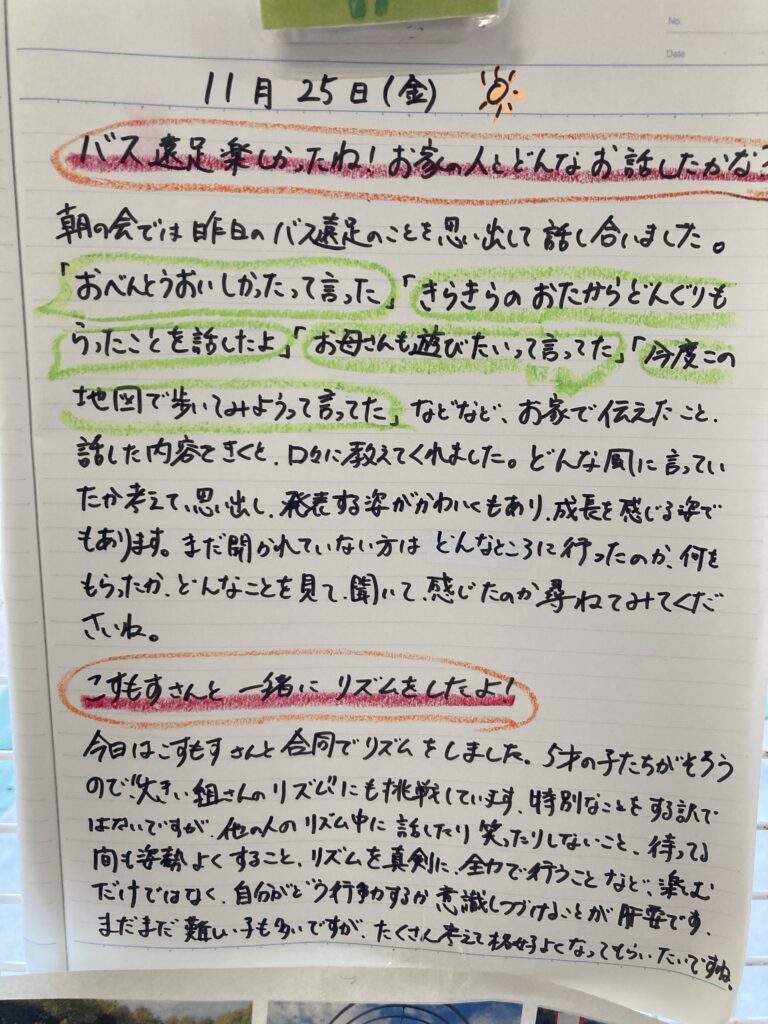 No.
Date
11月25日(金)
バス遠足楽しかったね！お家の人とどんなお話したかな？
朝の会では昨日のバス遠足のことを思い出して話し合いました。
「おべんとうおいしかったって言った」「きらきらのおたからどんぐりも
らったことを話したよ」「お母さんも遊びたいって言ってた」「今度この
地図で歩いてみようって言ってた」などなど、お家で伝えたこと、
話した内容をきくと、口々に教えてくれました。どんな風に言ってい
たか考えて、思い出し、発表する姿がかわいくもあり、成長を感じる姿で
もあります。まだ聞かれていない方はどんなところに行ったのか、何を
もらったか、どんなことを見て、聞いて、感じたのか尋ねてみてくだ
さいね。
こすもすさんと一緒にリズムをしたよ！
今日はこすもすさんと合同でリズムをしました。5才の子たちがそろう
ので“大きい組さんのリズム”にも挑戦しています。特別なことをする訳で
はないですが、他の人のリズム中に話したり笑ったりしないこと、待ってる
間も姿勢よくすること、リズムを真剣に、全力で行うことなど、楽しむ
だけではなく、自分がどう行動するか意識しつづけることが肝要です。
まだまだ難しい子も多いですが、たくさん考えて格好よくなってもらいたいですね。